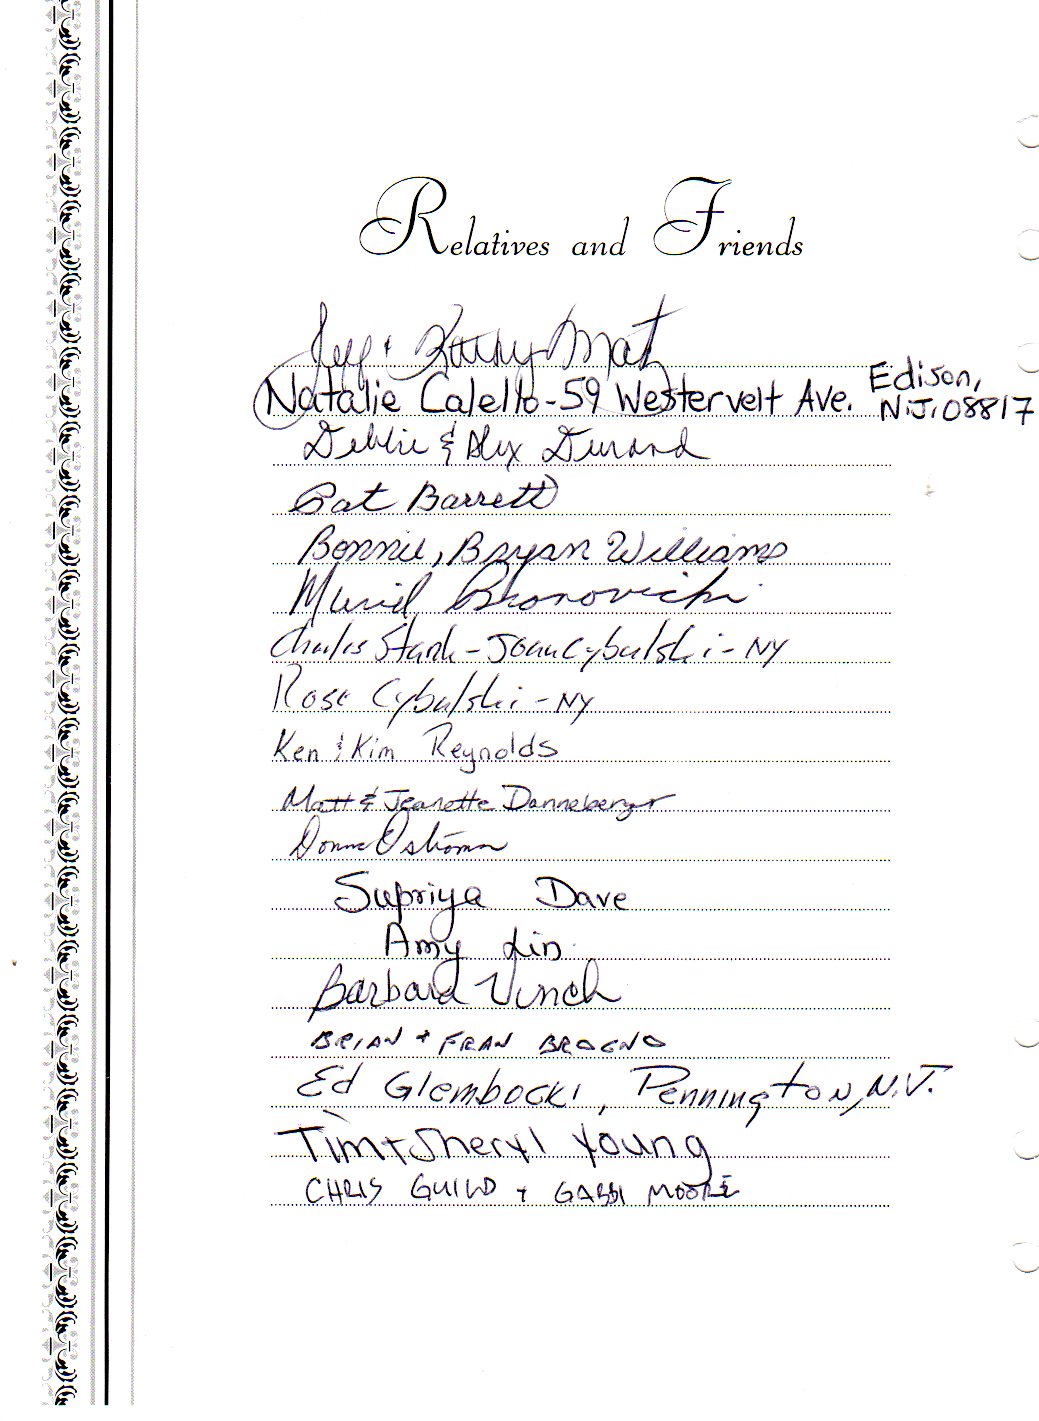 Relatives and Friends
Jeff & Kathy Matz
Natalie Calello - 59 Westervelt Ave. Edison, N.J. 08817
Debbie & Alex Durand
Pat Barrett
Bonnie, Bryan Williams
Muriel Bronovicki
Charles Stark - Joan Cybulski - NY
Rose Cybulski - NY
Ken & Kim Reynolds
Matt & Jeanette Danneberger
Donna Ostroman
Supriya Dave
Amy Lin
Barbara Vinch
BRIAN + FRAN BROGNO
Ed Glembocki, Pennington, N.J.
Tim + Sheryl Young
CHRIS GUILD + GABBI MOORE